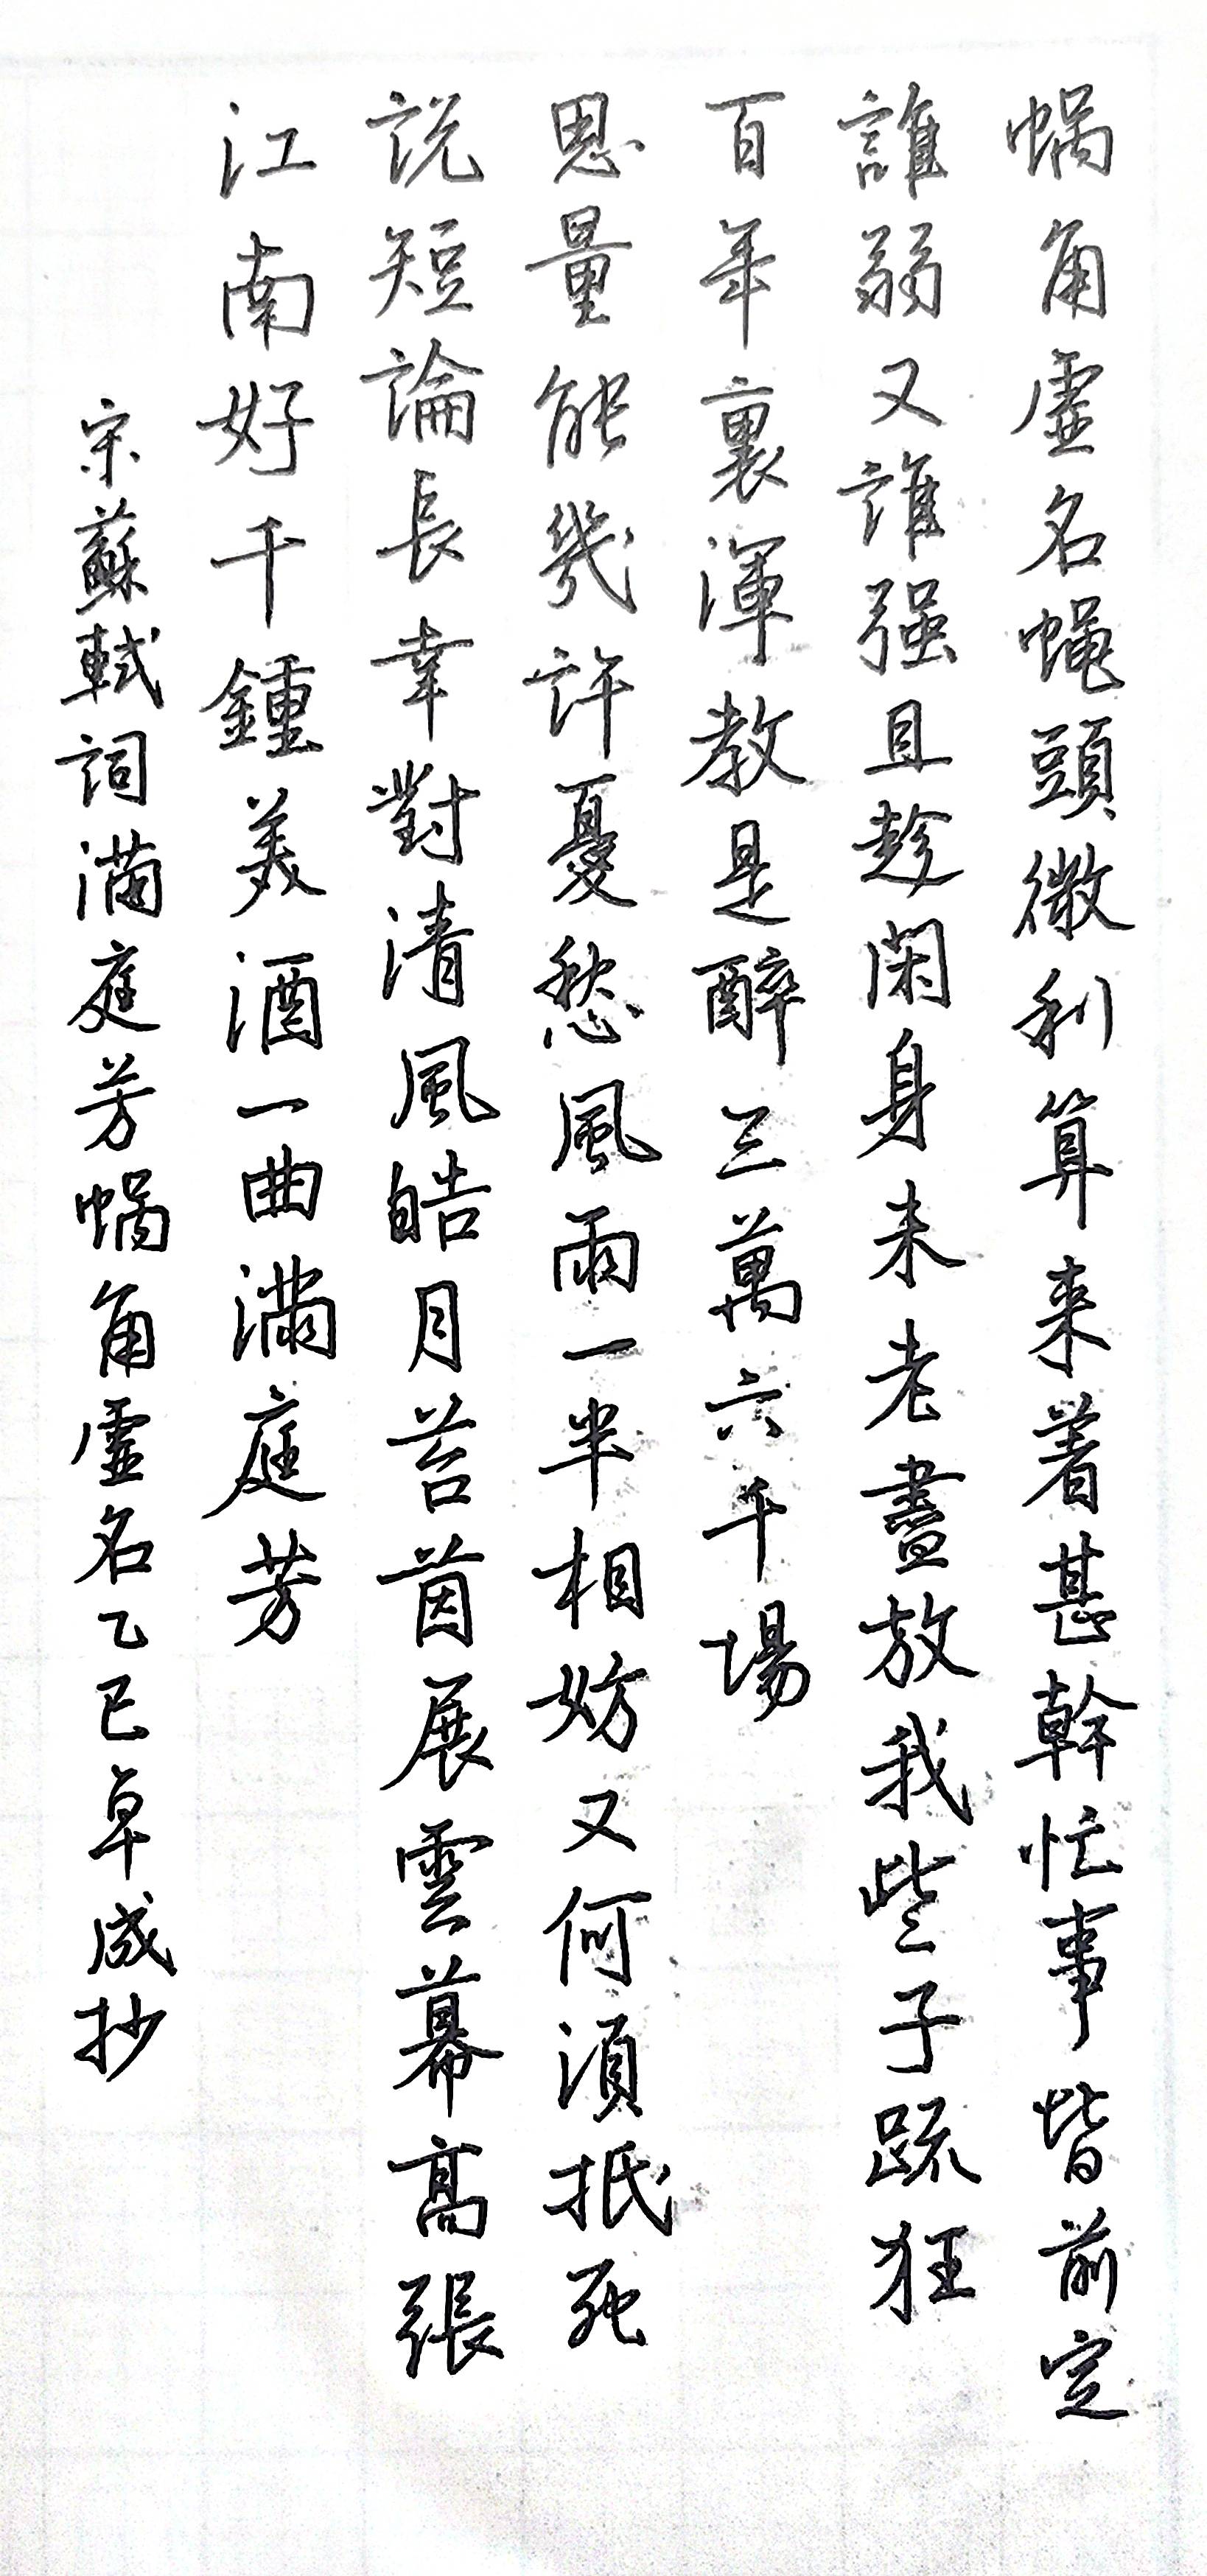 蝸角虛名蠅頭微利算來著甚幹忙事皆前定
誰弱又誰强且趁閑身未老盡放我些子疏狂
百年裏渾教是醉三萬六千場
思量能幾許憂愁風雨一半相妨又何須抵死
説短論長幸對清風皓月苔茵展雲幕高張
江南好千鍾美酒一曲滿庭芳
宋蘇軾詞滿庭芳蝸角虛名乙巳卓成抄